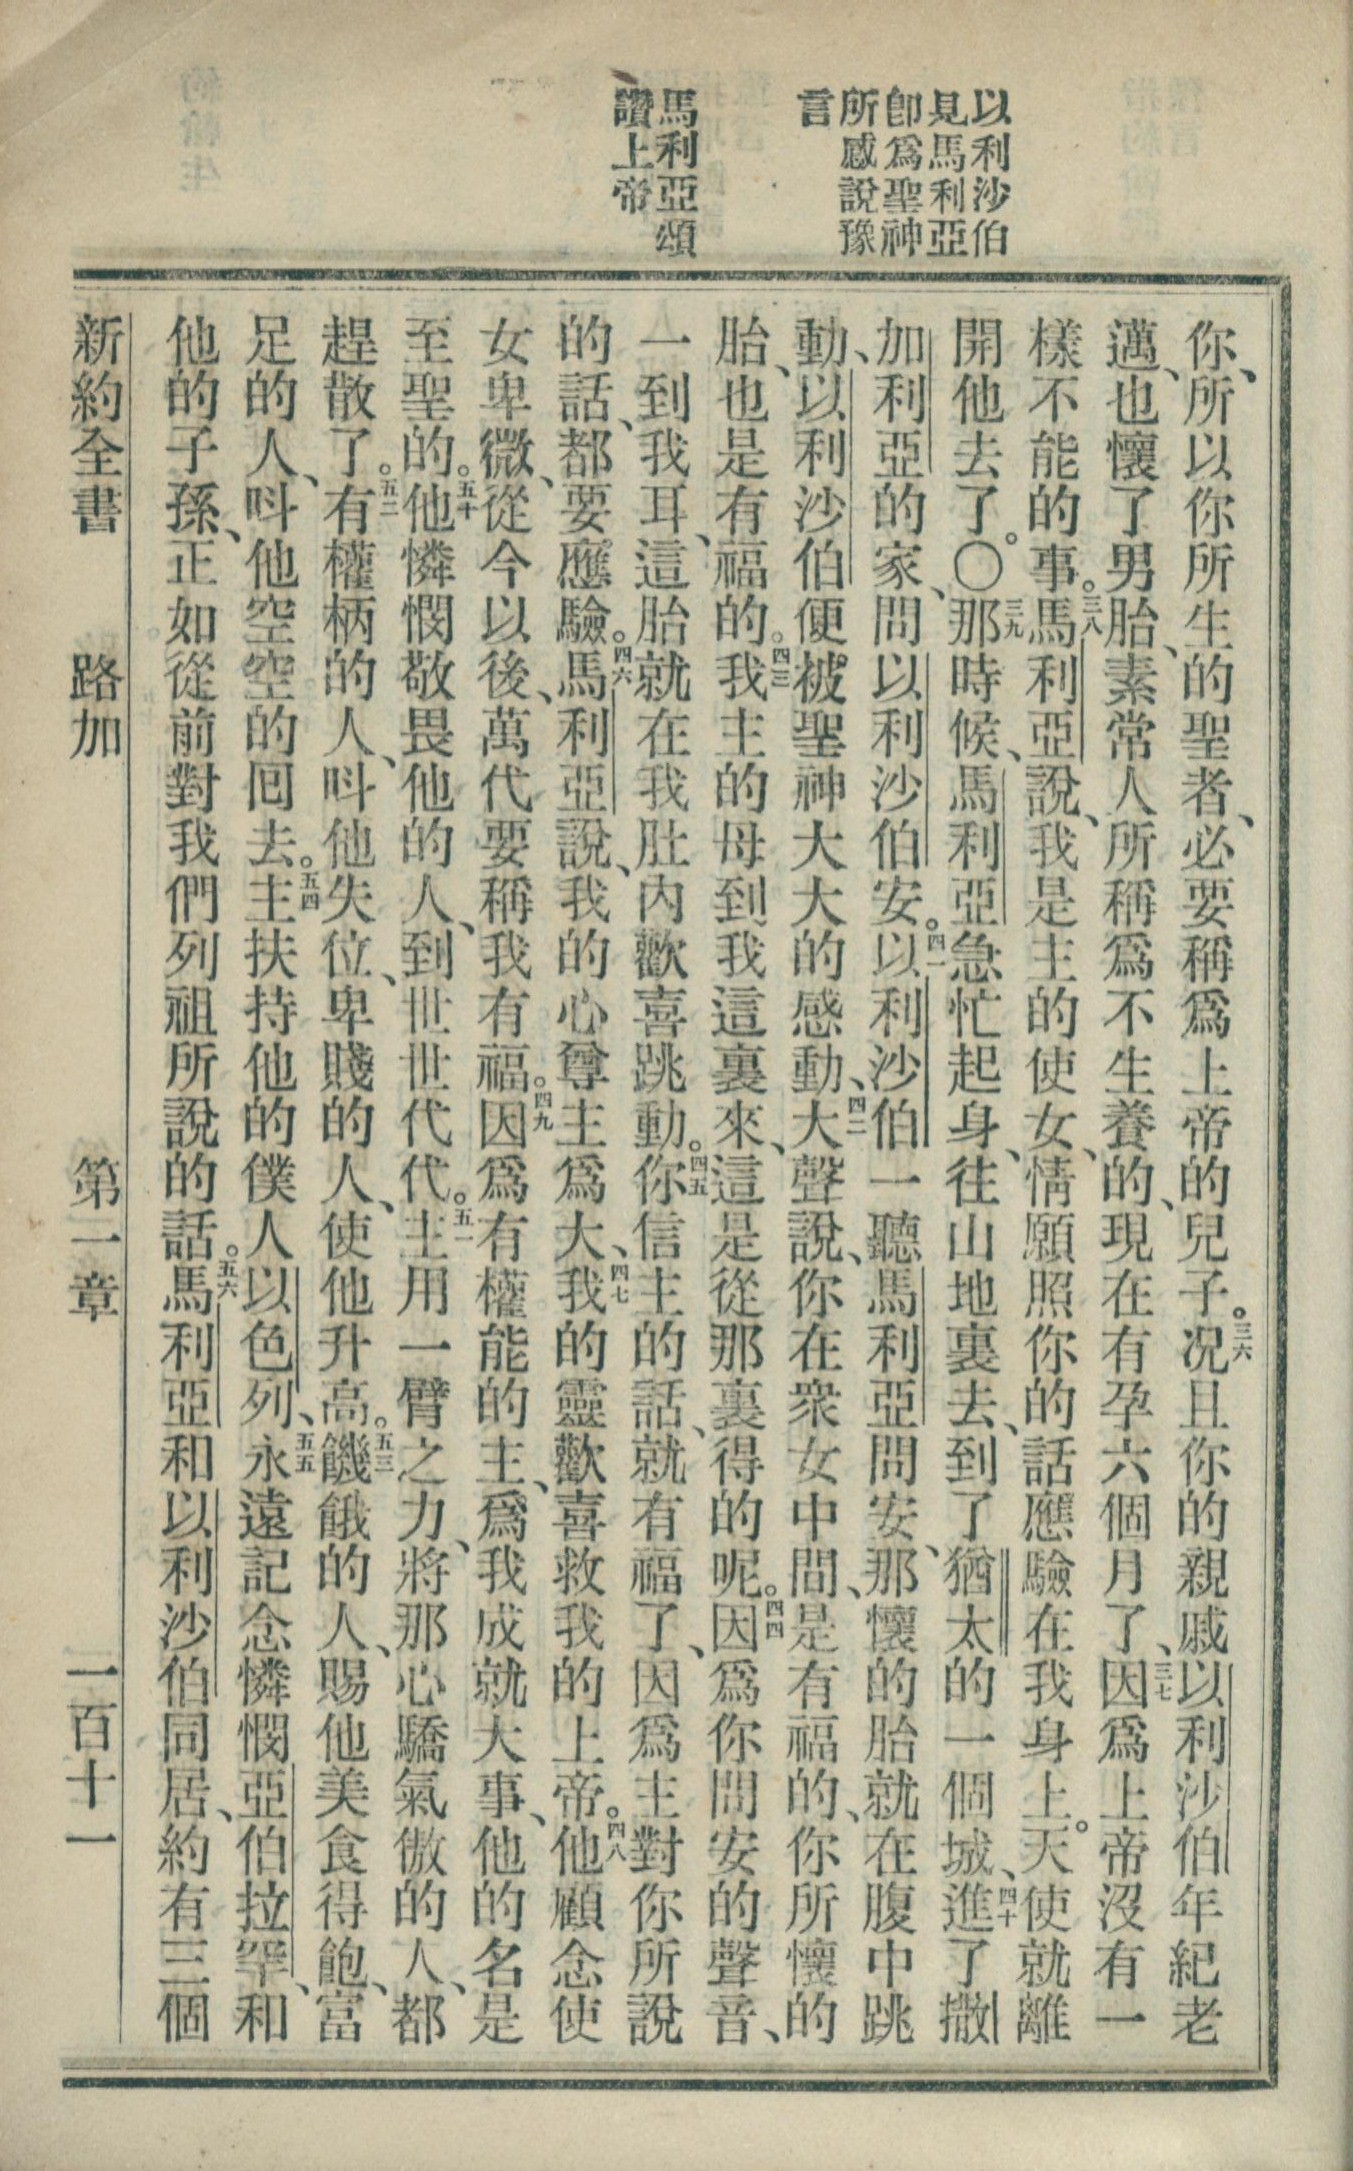 以利沙伯
見馬利亞
卽爲聖神
所感說豫
言
馬利亞頌
讚上帝
你、所以你所生的聖者、必要稱爲上帝的兒子。三六况且你的親戚以利沙伯年紀老
邁、也懷了男胎、素常人所稱爲不生養的、現在有孕六個月了、三七因爲上帝沒有一
樣不能的事。三八馬利亞說、我是主的使女、情願照你的話應驗在我身上。天使就離
開他去了。〇三九那時候、馬利亞急忙起身、往山地裏去、到了猶太的一個城、四十進了撒
加利亞的家、問以利沙伯安。四一以利沙伯一聽馬利亞問安、那懷的胎就在腹中跳
動、以利沙伯便被聖神大大的感動、四二大聲說、你在衆女中間、是有福的、你所懷的
胎、也是有福的。四三我主的母到我這裏來、這是從那裏得的呢。四四因爲你問安的聲音、
一到我耳、這胎就在我肚內歡喜跳動。四五你信主的話、就有福了、因爲主對你所說
的話、都要應驗。四六馬利亞說、我的心尊主爲大、四七我的靈歡喜救我的上帝。四八他顧念使
女卑微、從今以後、萬代要稱我有福。四九因爲有權能的主、爲我成就大事、他的名是
至聖的。五十他憐憫敬畏他的人、到世世代代。五一主用一臂之力、將那心驕氣傲的人、都
趕散了。五二有權柄的人、呌他失位、卑賤的人、使他升高。五三饑餓的人、賜他美食得飽、富
足的人、呌他空空的囘去。五四主扶持他的僕人以色列、五五永遠記念憐憫亞伯拉罕、和
他的子孫、正如從前對我們列祖所說的話。五六馬利亞和以利沙伯同居、約有三個
新約全書　路加　第一章　一百十一